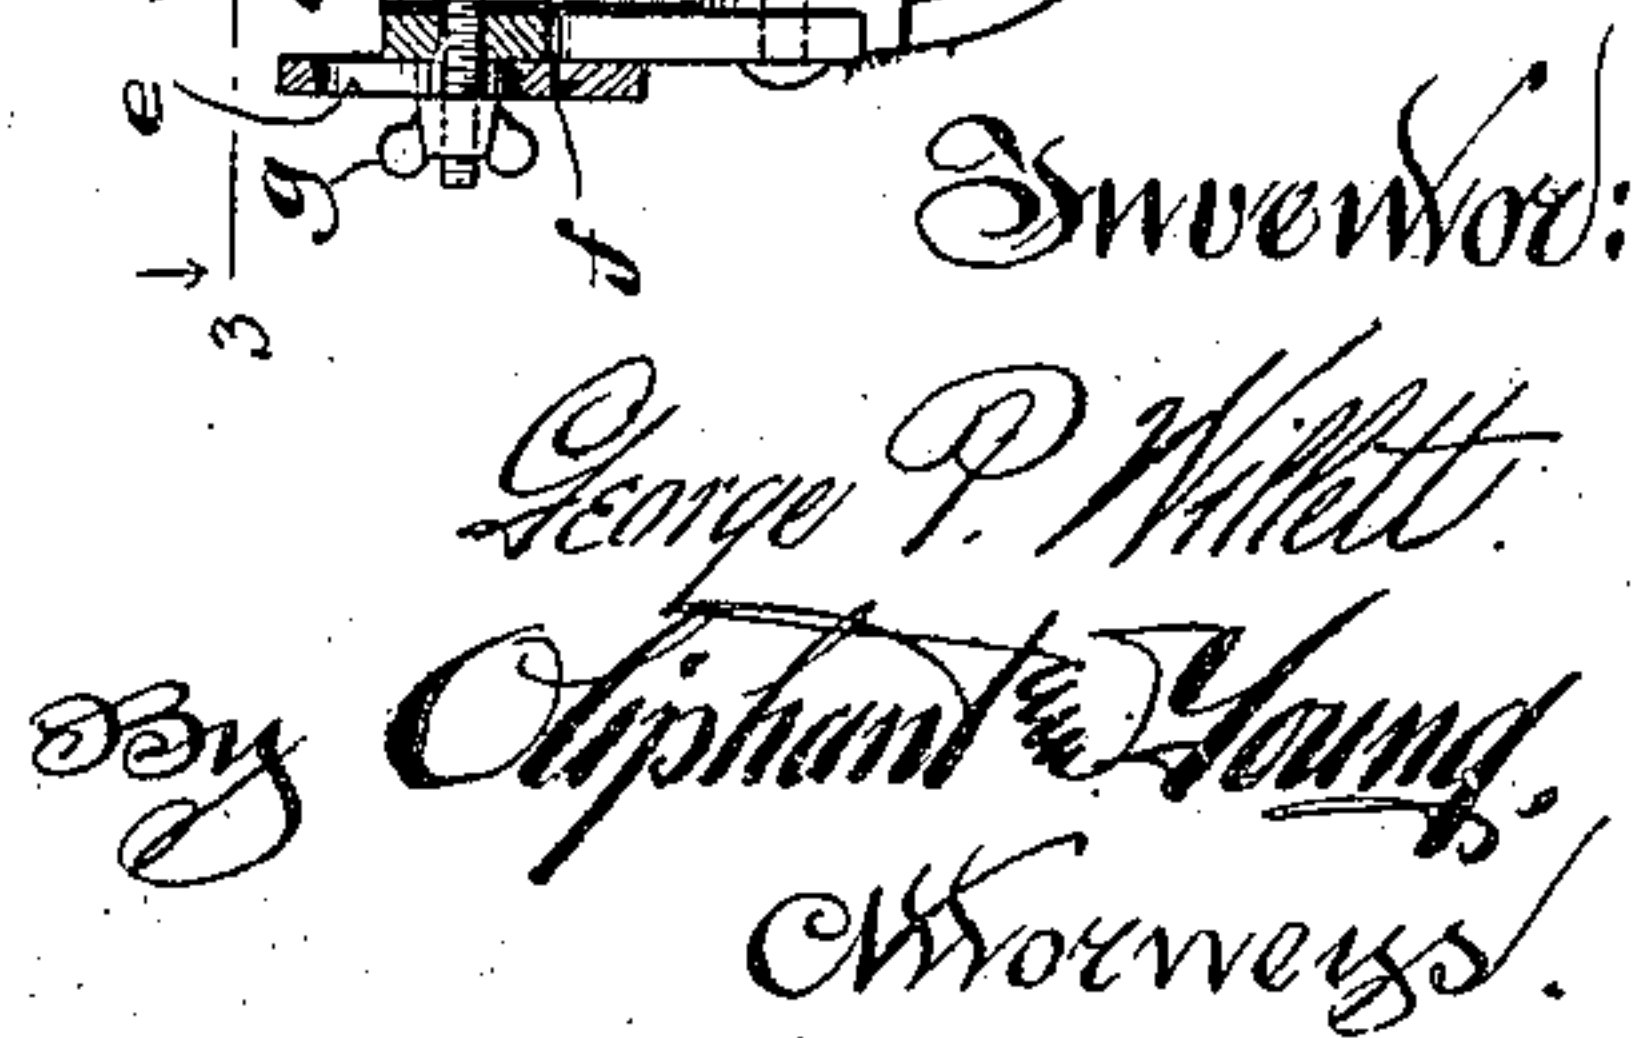 e
g
f
3
Inventor:
George P. Willett.
By Oliphant & Young.
Attorneys.